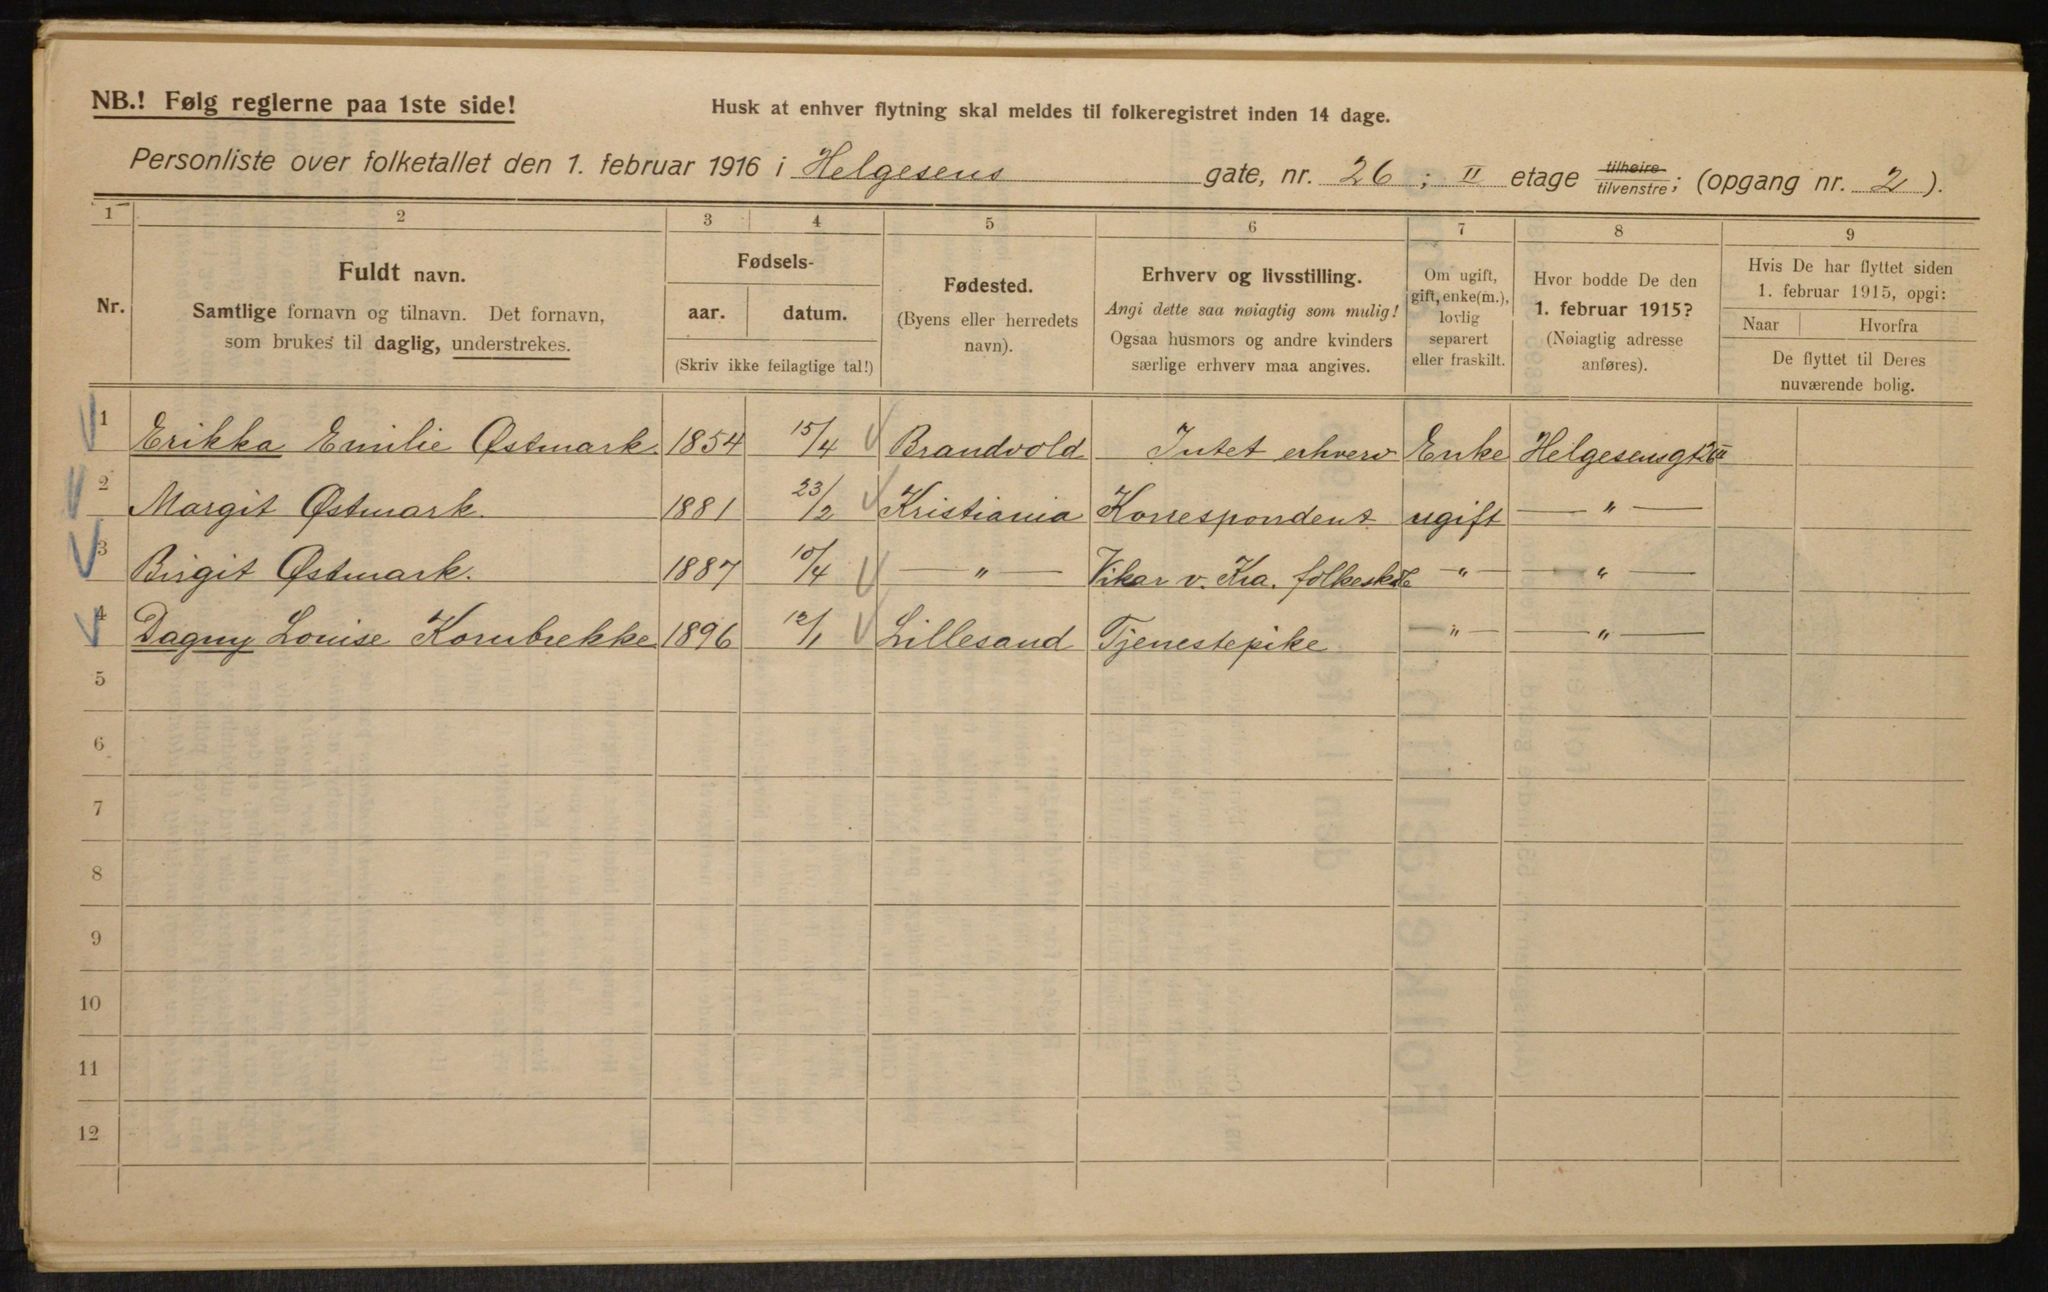 NB.! Følg reglerne paa 1ste side!
Husk at enhver flytning skal meldes til folkeregistret inden 14 dage.
Personliste over folketallet den 1. februar 1916 i Helgesens gate, nr. 26 ; II etage tilhøire tilvenstre ; (opgang nr. 2 ).
1 2 3 4 5 6 7 8 9
Nr.
Fuldt navn.
Samtlige fornavn og tilnavn. Det fornavn,
som brukes til daglig, understrekes.
Fødsels-
aar. datum.
(Skriv ikke feilagtige tal!)
Fødested.
(Byens eller herredets
navn).
Erhverv og livsstilling.
Angi dette saa nøiagtig som mulig!
Ogsaa husmors og andre kvinders
særlige erhverv maa angives.
Om ugift,
gift, enke(m.),
lovlig
separert
eller fraskilt.
Hvor bodde De den
1. februar 1915?
(Nøiagtig adresse
anføres).
Hvis De har flyttet siden
1. februar 1915, opgi:
Naar Hvorfra
De flyttet til Deres
nuværende bolig.
1 Erikka Emilie Østmark. 1854 15/4 Brandvold Intet erhverv Enke Helgesensgt
2 Margit Østmark. 1881 23/2 Kristiania Korrespondent ugift — " —
3 Birgit Østmark. 1887 10/4 — " — Vikar v. Kra. — " — — " —
4 Dagny Louise Kornbrekke 1896 12/1 Lillesand Tjenestepike — " — — " —
5
6
7
8
9
10
11
12